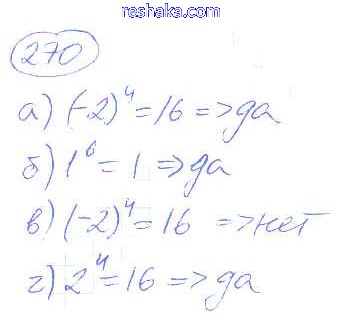 reshaka.com
270
а) (-2)⁴ = 16 => да
б) 1⁶ = 1 => да
в) (-2)⁴ = 16 => нет
г) 2⁴ = 16 => да